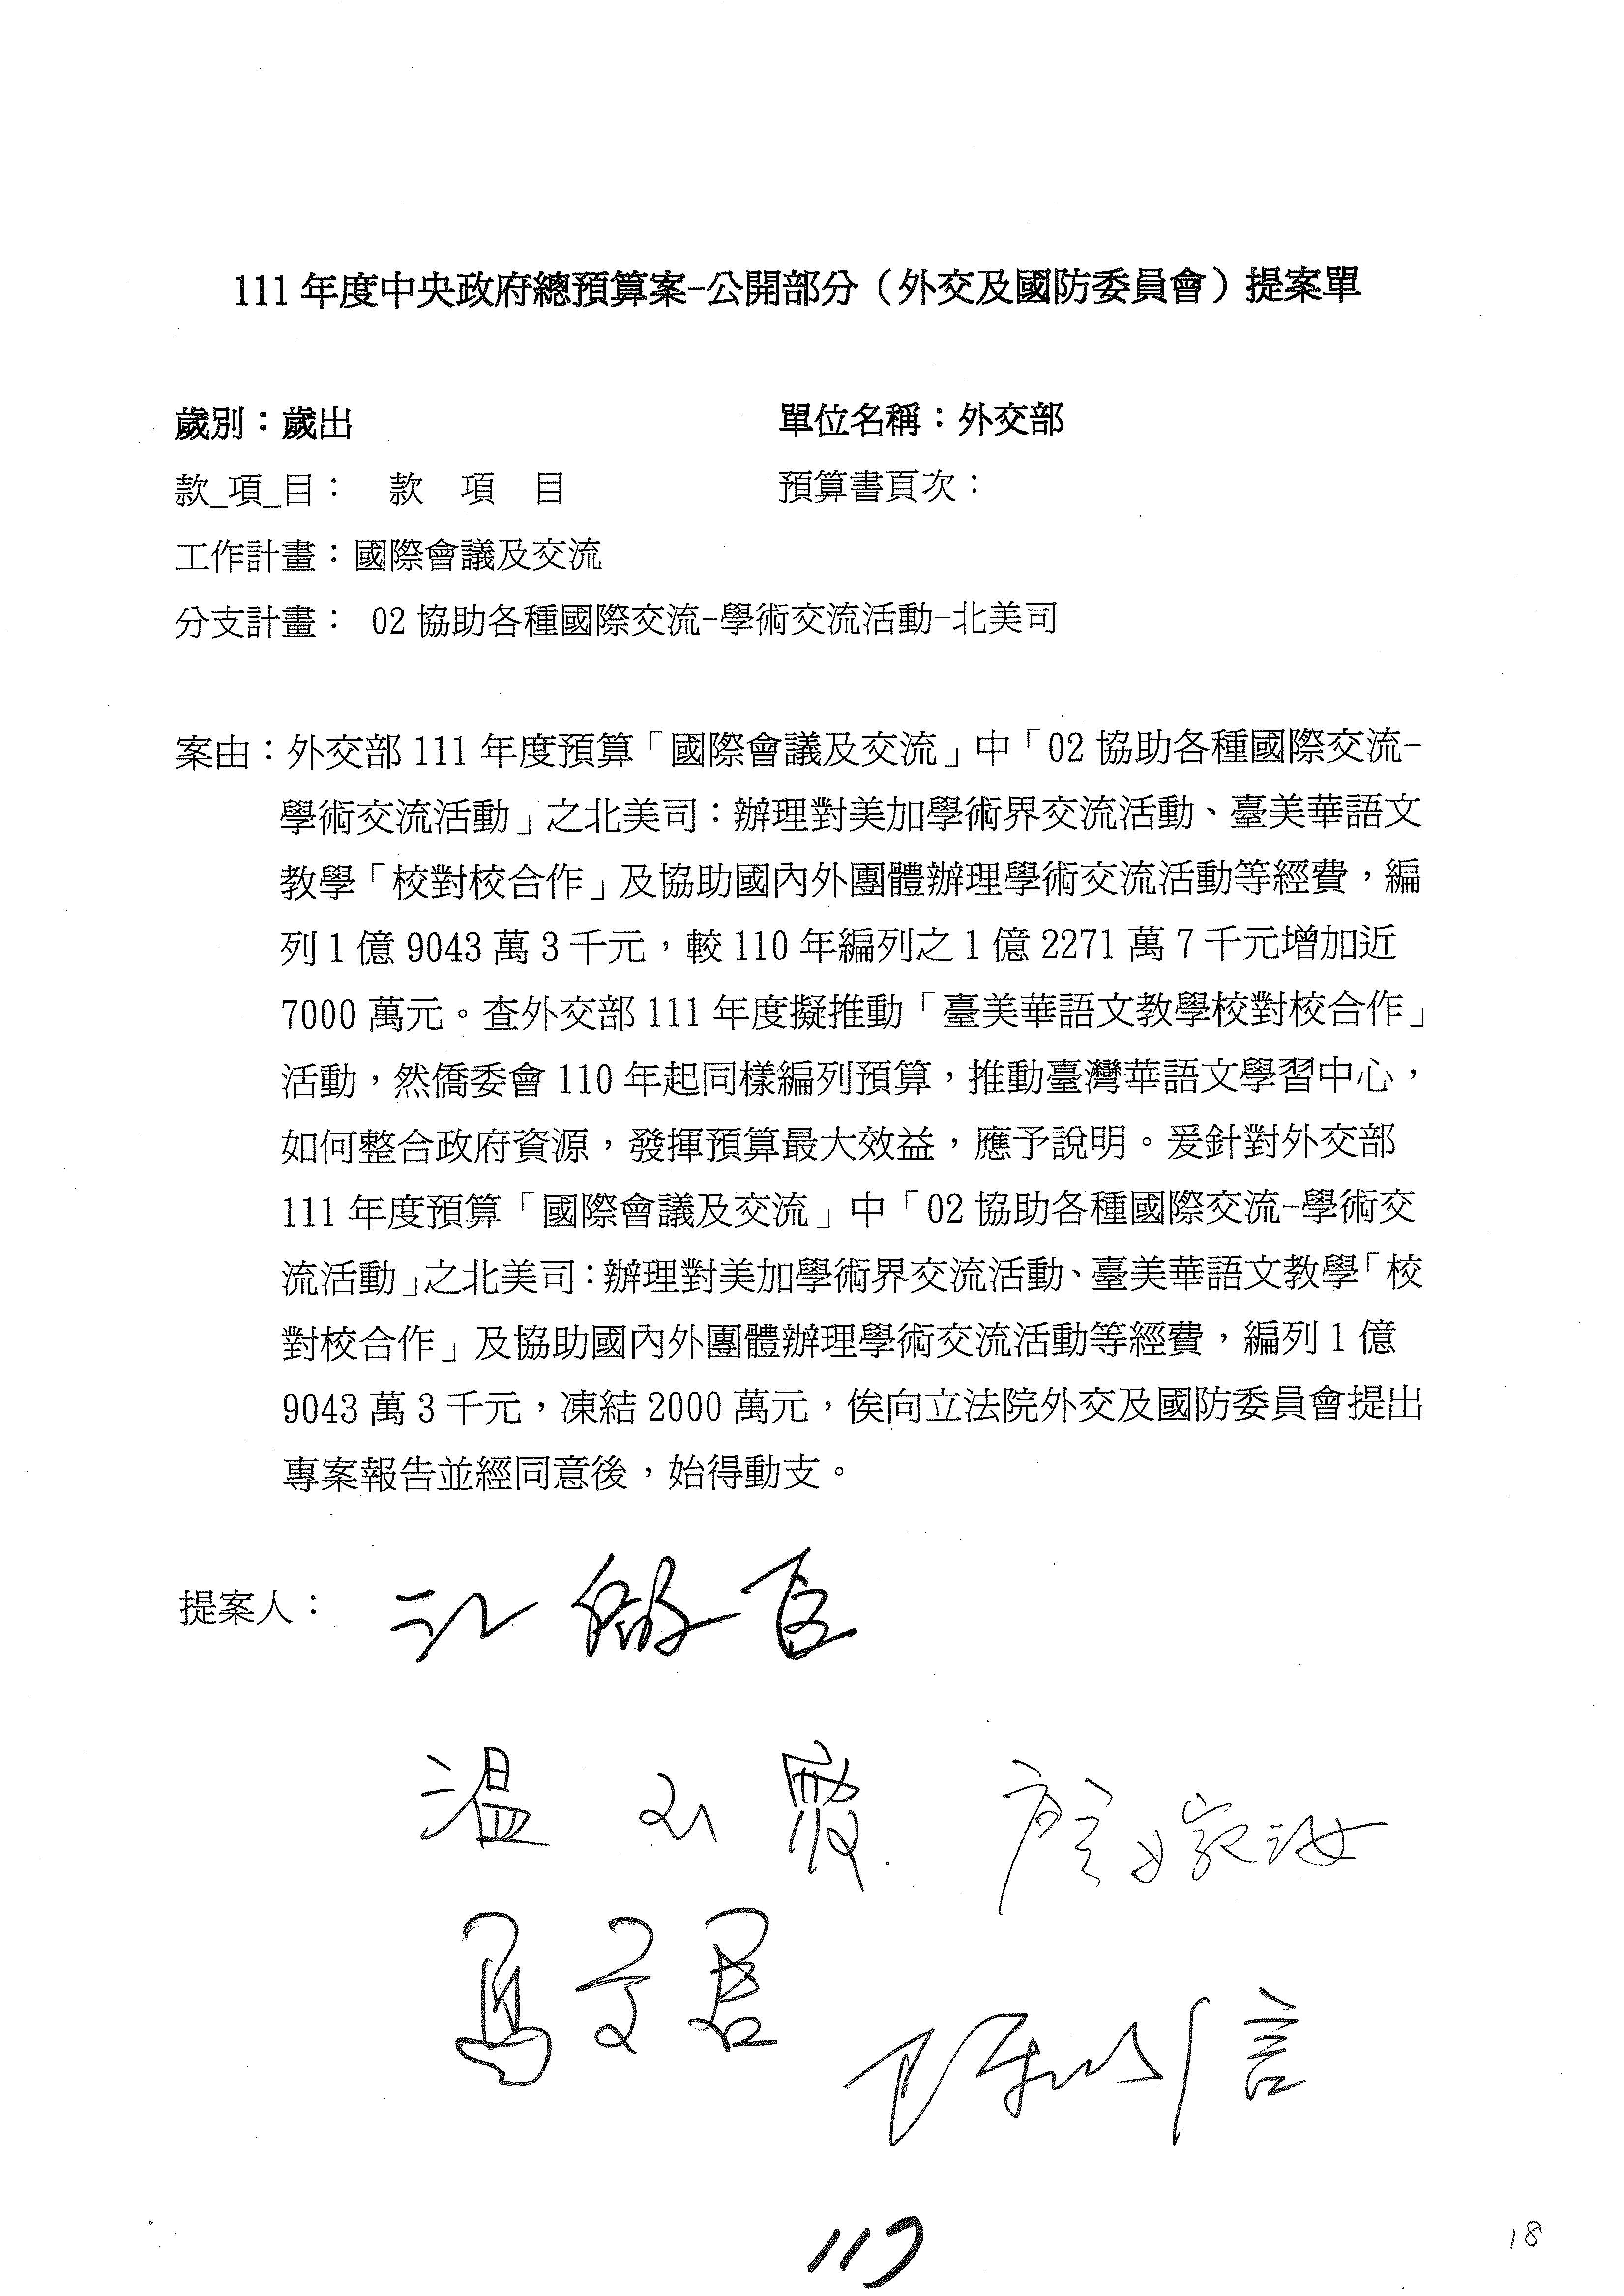 111年度中央政府總預算案-公開部分（外交及國防委員會）提案單
歲別：歲出 單位名稱：外交部
款_項_目： 款 項 目 預算書頁次：
工作計畫：國際會議及交流
分支計畫： 02協助各種國際交流-學術交流活動-北美司
案由：外交部111年度預算「國際會議及交流」中「02協助各種國際交流-
學術交流活動」之北美司：辦理對美加學術界交流活動、臺美華語文
教學「校對校合作」及協助國內外團體辦理學術交流活動等經費，編
列1億9043萬3千元，較110年編列之1億2271萬7千元增加近
7000萬元。查外交部111年度擬推動「臺美華語文教學校對校合作」
活動，然僑委會110年起同樣編列預算，推動臺灣華語文學習中心，
如何整合政府資源，發揮預算最大效益，應予說明。爰針對外交部
111年度預算「國際會議及交流」中「02協助各種國際交流-學術交
流活動」之北美司：辦理對美加學術界交流活動、臺美華語文教學「校
對校合作」及協助國內外團體辦理學術交流活動等經費，編列1億
9043萬3千元，凍結2000萬元，俟向立法院外交及國防委員會提出
專案報告並經同意後，始得動支。
提案人： 江啟臣
溫玉霞 廖婉汝
馬文君
陳以信
117
18